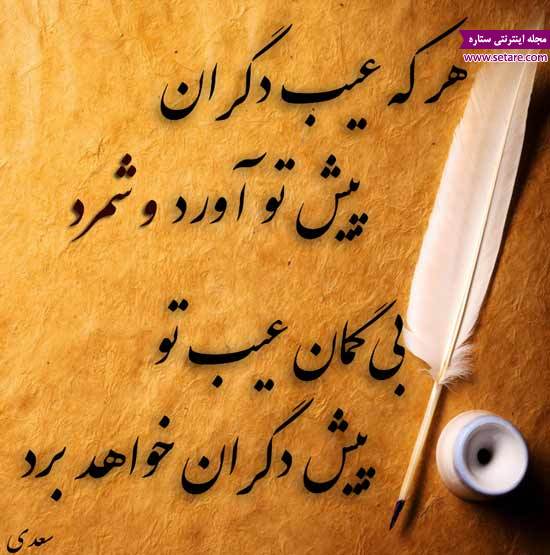 مجله اینترنتی ستاره
www.setare.com
هر که عیب دگران
پیش تو آورد و شمرد
بی گمان عیب تو
پیش دگران خواهد برد
سعدی